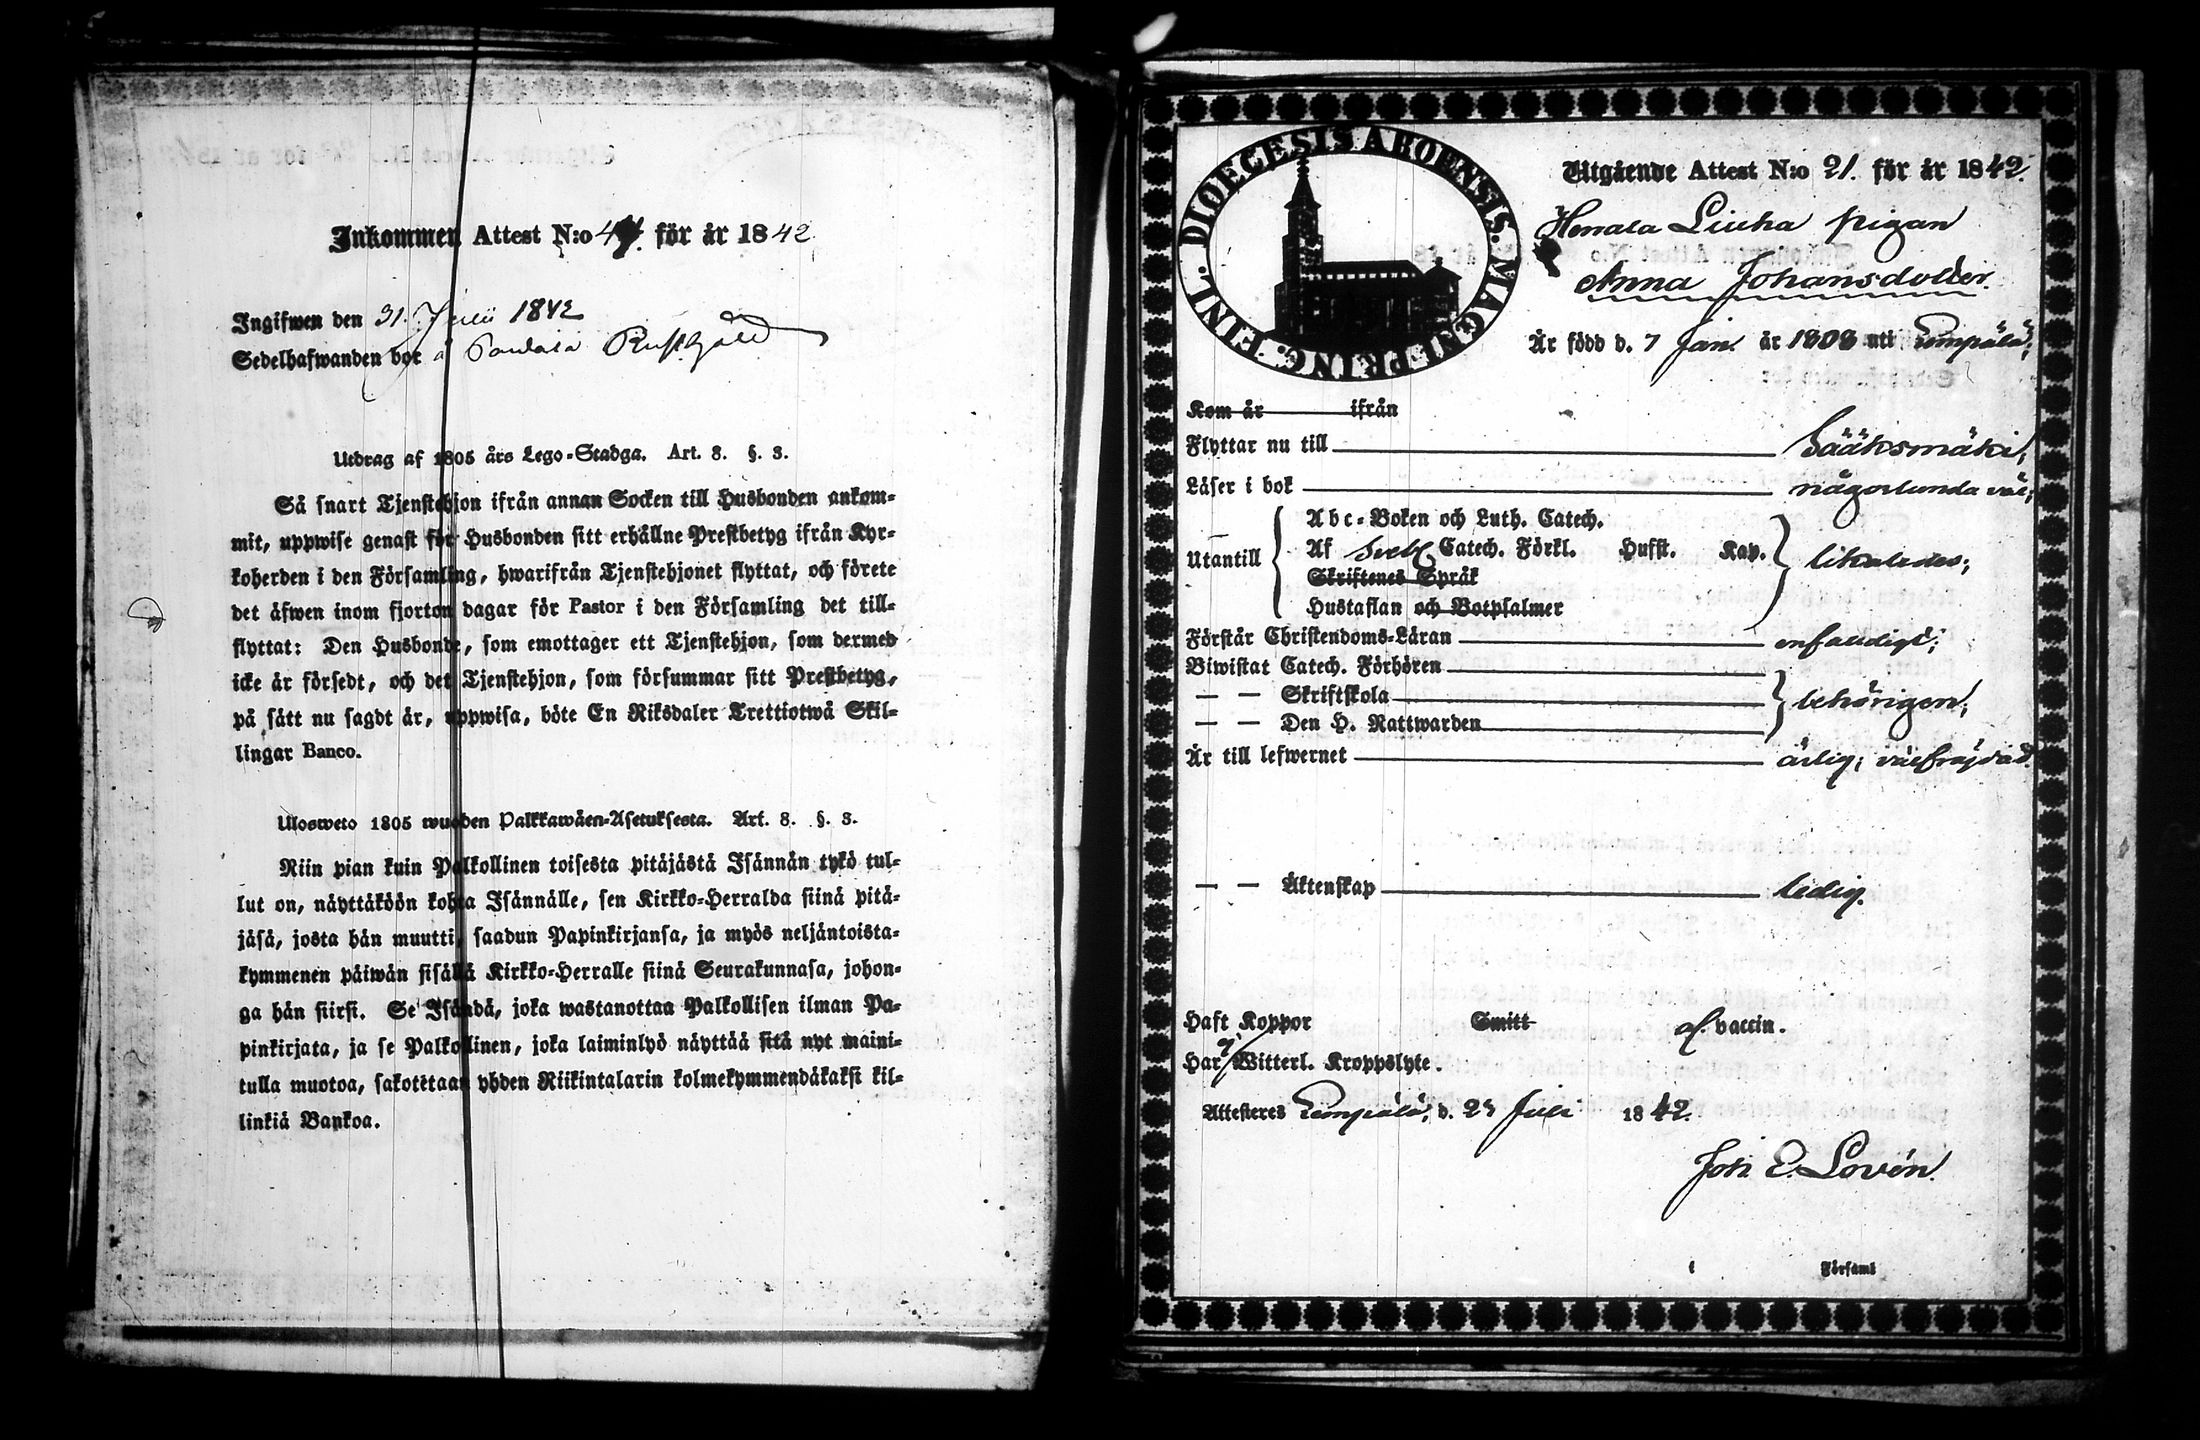 Inkommen Attest N:o 44. för år 1842
Ingifwen den 31. Julii 1842
Sedelhafwanden bor å Rusthåld
Utdrag af 1805 års Lego-Stadga. Art. 8. §. 3.
Så snart Tjenstehjon ifrån annan Socken till Husbonden ankom-
mit, uppwise genast för Husbonden sitt erhållne Prestbetyg ifrån Kyr-
koherden i den Församling, hwarifrån Tjenstehjonet flyttat, och förete
det äfwen inom fjorton dagar för Pastor i den Församling det till-
flyttat: Den Husbonde, som emottager ett Tjenstehjon, som dermed
icke är försedt, och det Tjenstehjon, som försummar sitt Prestbetyg,
på sätt nu sagdt är, uppwisa, böte En Riksdaler Trettiotwå Skil-
lingar Banco.
Ulosweto 1805 wuoden Palkkawäen-Asetuksesta. Art. 8. §. 3.
Niin pian kuin Palkollinen toisesta pitäjästä Isännän tykö tul-
lut on, näyttäköön kohta Isännälle, sen Kirkko-Herralda siinä pitä-
jäsä, josta hän muutti, saadun Papinkirjansa, ja myös neljäntoista-
kymmenen päiwän sisällä Kirkko-Herralle siinä Seurakunnasa, johon-
ga hän siirsi. Se Isändä, joka wastanottaa Palkollisen ilman Pa-
pinkirjata, ja se Palkollinen, joka laiminlyö näyttää sitä nyt maini-
tulla muotoa, sakotetaan yhden Riikintalarin kolmekymmendäkaksi kil-
linkiä Bankoa.
DIOECESIS ABOENSIS. MAGNI PRINC. FINL.
Utgående Attest N:o 21. för år 1842.
Henala Liuha pigan
Anna Johansdotter.
Är född d. 7 Jan. år 1808 uti Lempälä;
Kom år ifrån
Flyttar nu till Sääksmäki;
Läser i bok någorlunda väl;
Utantill
Abc-Boken och Luth. Catech.
Af Sveb. Catech. Förkl. Hufst. Kap. likaledes;
Skriftenes Språk
Hustaflan och Botpsalmer
Förstår Christendoms-Läran enfaldigt;
Biwistat Catech. Förhören
— — Skriftskola behörigen;
— — Den H. Nattwarden
Är till lefwernet ärlig; välfräjdad.
— — Äktenskap ledig.
Haft Koppor Smitt af vaccin.
Har ej Witterl. Kroppslyte.
Attesteres Lempälä, d. 25 Juli 1842.
Joh E. Lovén.
i Församl